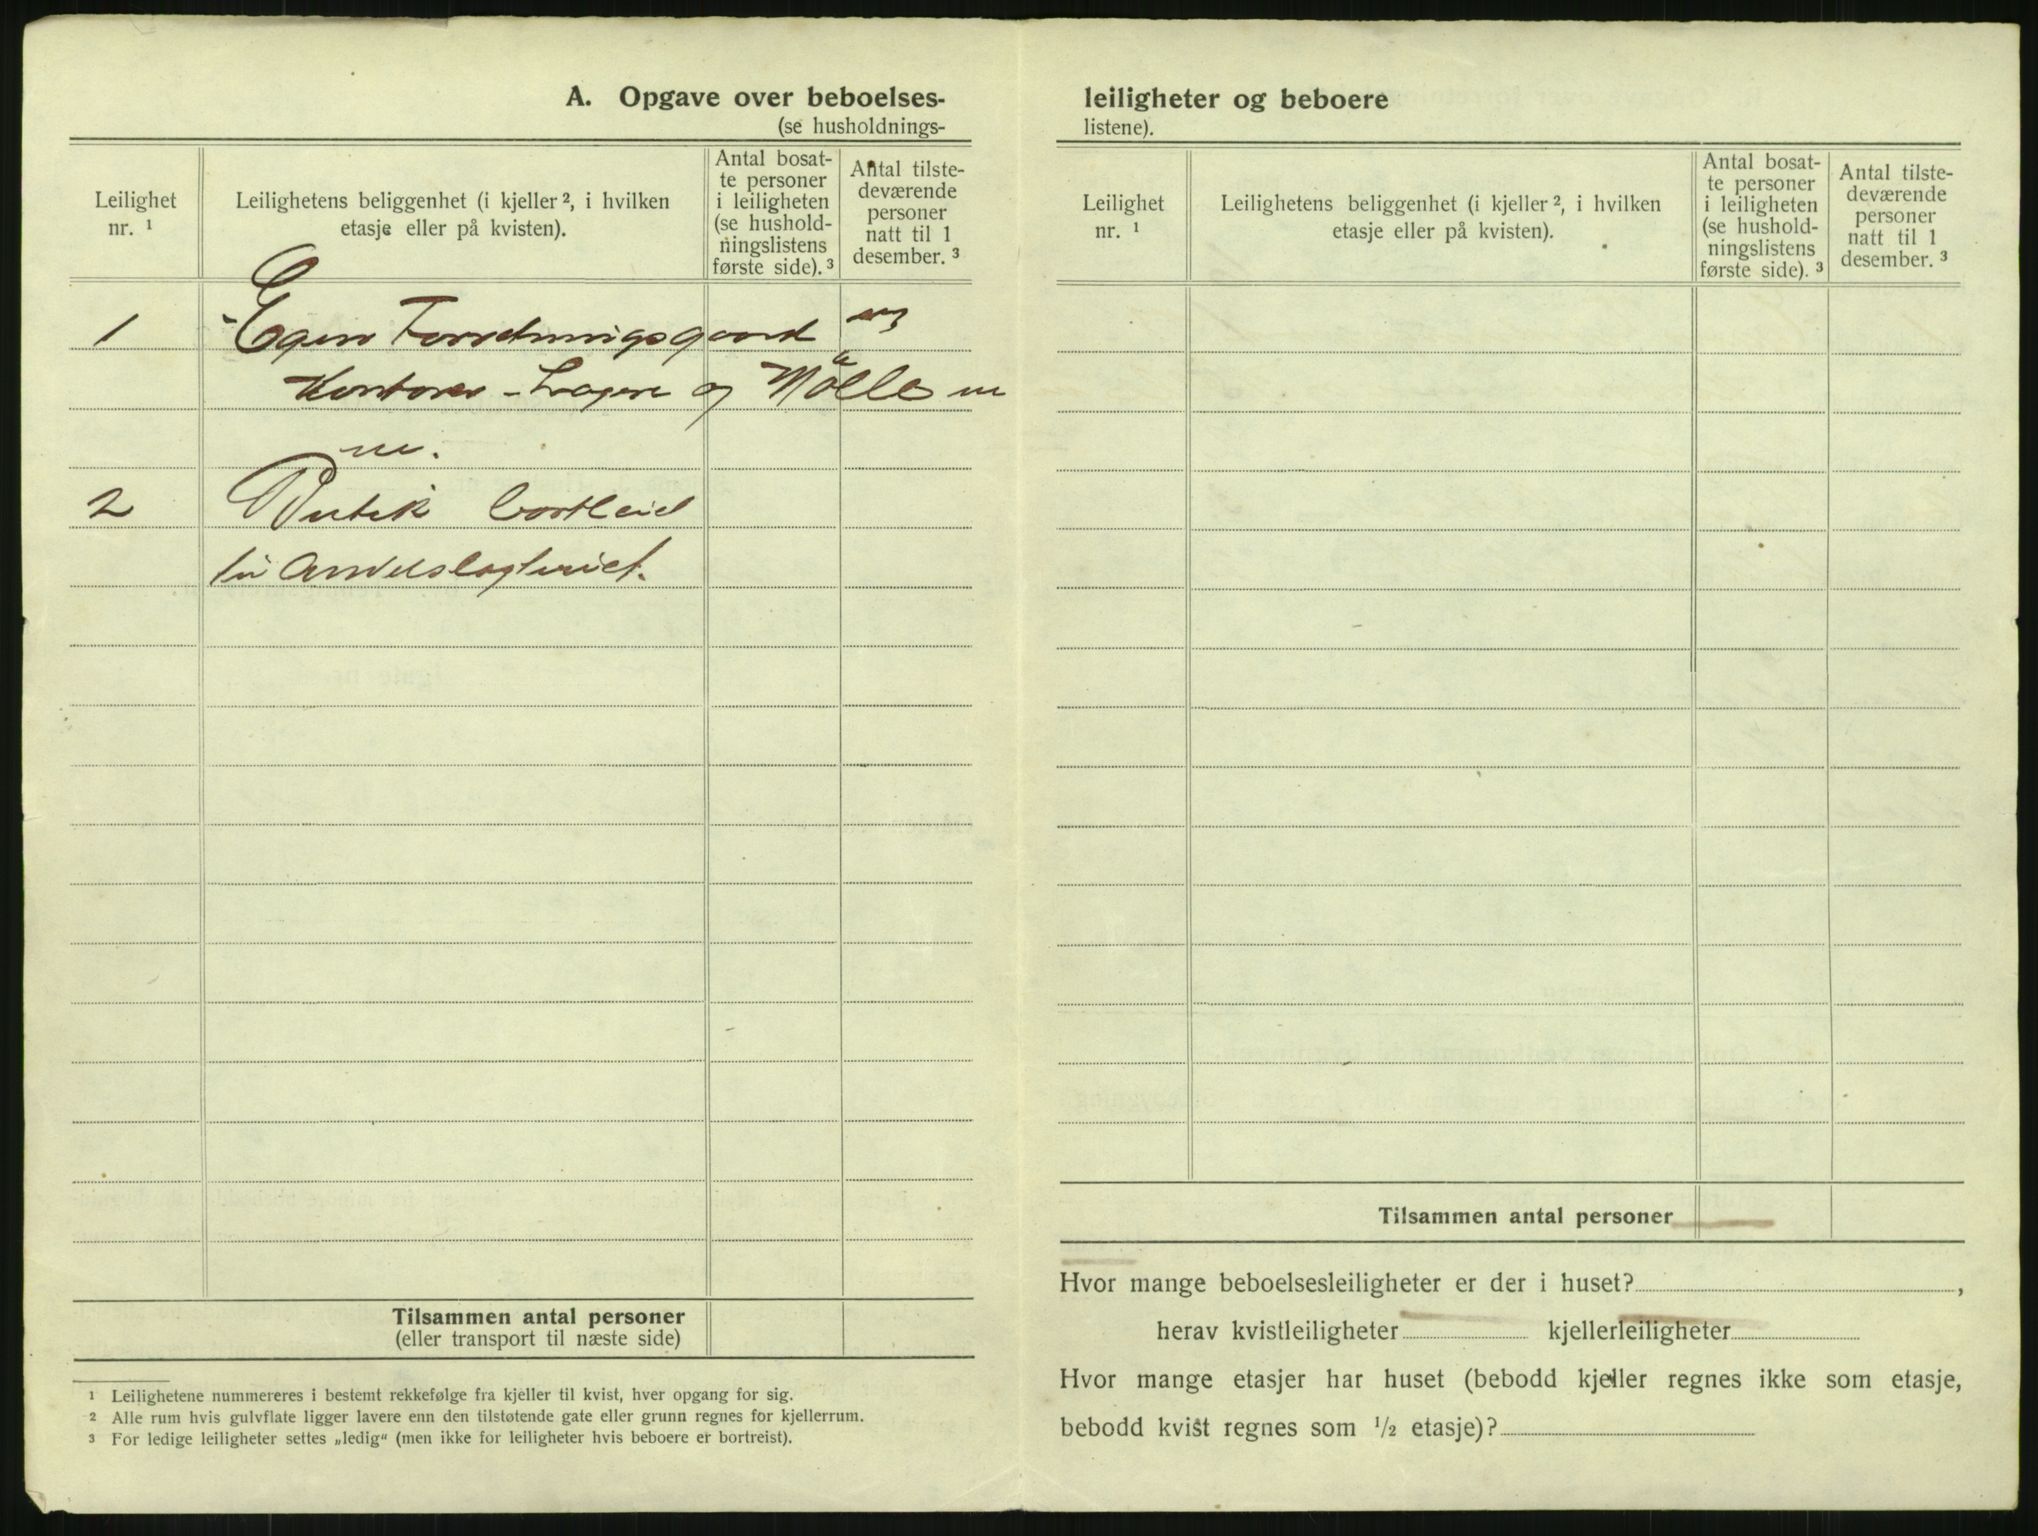 A. Opgave over beboelses-
(se husholdnings-
Leilighet
nr. ¹
Leilighetens beliggenhet (i kjeller ², i hvilken
etasje eller på kvisten).
Antal bosat-
te personer
i leiligheten
(se hushold-
ningslistens
første side). ³
Antal tilste-
deværende
personer
natt til 1
desember. ³
1 Egen Forretningsgaard
Kontorer - Lagere og Mölle
2 Butik bortleid
til Andelslagteriet.
Tilsammen antal personer
(eller transport til næste side)
¹ Leilighetene nummereres i bestemt rekkefølge fra kjeller til kvist, hver opgang for sig.
² Alle rum hvis gulvflate ligger lavere enn den tilstøtende gate eller grunn regnes for kjellerrum.
³ For ledige leiligheter settes „ledig“ (men ikke for leiligheter hvis beboere er bortreist).
leiligheter og beboere
listene).
Leilighet
nr. ¹
Leilighetens beliggenhet (i kjeller ², i hvilken
etasje eller på kvisten).
Antal bosat-
te personer
i leiligheten
(se hushold-
ningslistens
første side). ³
Antal tilste-
deværende
personer
natt til 1
desember. ³
Tilsammen antal personer
Hvor mange beboelsesleiligheter er der i huset? ,
herav kvistleiligheter kjellerleiligheter
Hvor mange etasjer har huset (bebodd kjeller regnes ikke som etasje,
bebodd kvist regnes som ½ etasje)?